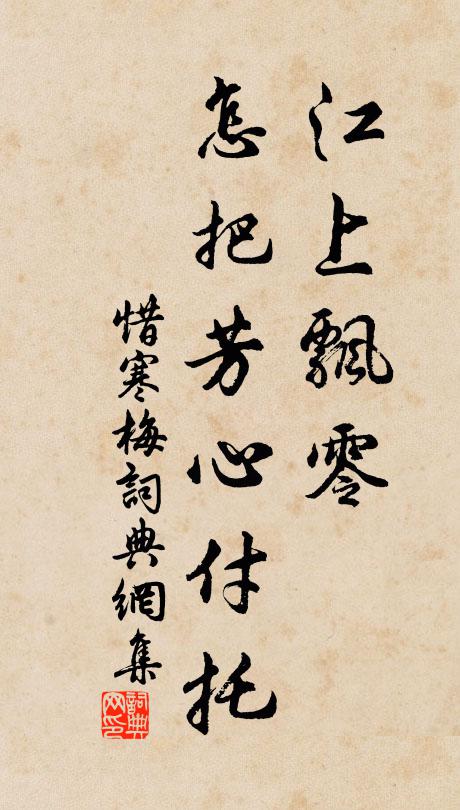 江上飄零
怎把芳心付托
惜寒梅詞典網集
詞典网印